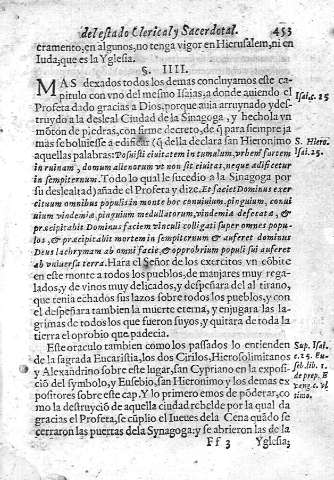 del estado Clerical y Sacerdotal. 453
cramento, en algunos, no tenga vigor en Hierusalem, ni en
Iuda, que es la Yglesia.
§. IIII.
MAS dexados todos los demas concluyamos este ca-
pitulo con vno del mesmo Isaias, a donde auiendo el
Isai. c. 25
Profeta dado gracias a Dios, porque auia arruynado y des-
truydo a la desleal Ciudad de la Sinagoga, y hechola vn
mõton de piedras, con firme decreto, de q̃ para siempre ja
mas se boluiesse a edificar (q̃ della declara san Hieronimo
S. Hiero.
Isai. 25.
aquellas palabras: Posuisti ciuitatem in tumulum, vrbem fortem
in ruinam, domum alienorum vt non sit ciuitas, neque ædificetur
in sempiternum. Todo lo qual le sucedio a la Sinagoga por
su deslealtad) añade el Profeta y dize. Et faciet Dominus exer
cituum omnibus populis in monte hoc conuiuium, pinguium, conui
uium vindemiæ, pinguium medullatorum, vindemia defæcata, &
præcipitabit Dominus faciem vinculi colligati super omnes popu-
los, & præcipitabit mortem in sempiternum & auferet dominus
Deus lachrymam ab omni facie, & opprobrium populi sui auferet
ab vniuersa terra. Hara el Señor de los exercitos vn cõbite
en este monte a todos los pueblos, de manjares muy rega-
lados, y de vinos muy delicados, y despeñara del al tirano,
que tenia echados sus lazos sobre todos los pueblos, y con
el despeñara tambien la muerte eterna, y enjugara las la-
grimas de todos los que fueron suyos, y quitara de toda la
tierra el oprobio que padecia.
Este oraculo tambien como los passados lo entienden
Sup. Isai.
de la sagrada Eucaristia, los dos Cirilos, Hierosolimitanos
c. 25. Eu-
y Alexandrino sobre este lugar, san Cypriano en la exposi
seb. lib. 1.
ciõ del symbolo, y Eusebio, san Hieronimo y los demas ex
de prep. E
positores sobre este cap. Y lo primero emos de põderar, co
uang. c. vl
mo la destruyciõ de aquella ciudad rebelde por la qual da
timo.
gracias el Profeta, se cũplio el Iueues de la Cena quãdo se
cerraron las puertas de la Synagoga: y se abrieron las de la
Ff 3 Yglesia;